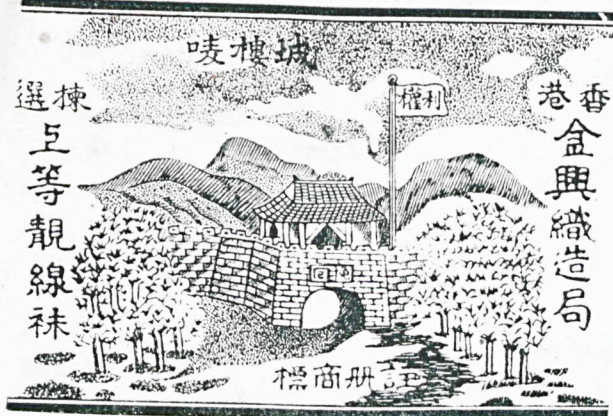 城樓唛
香港
金興織造局
利權
揀選
上等靚線袜
註册商標